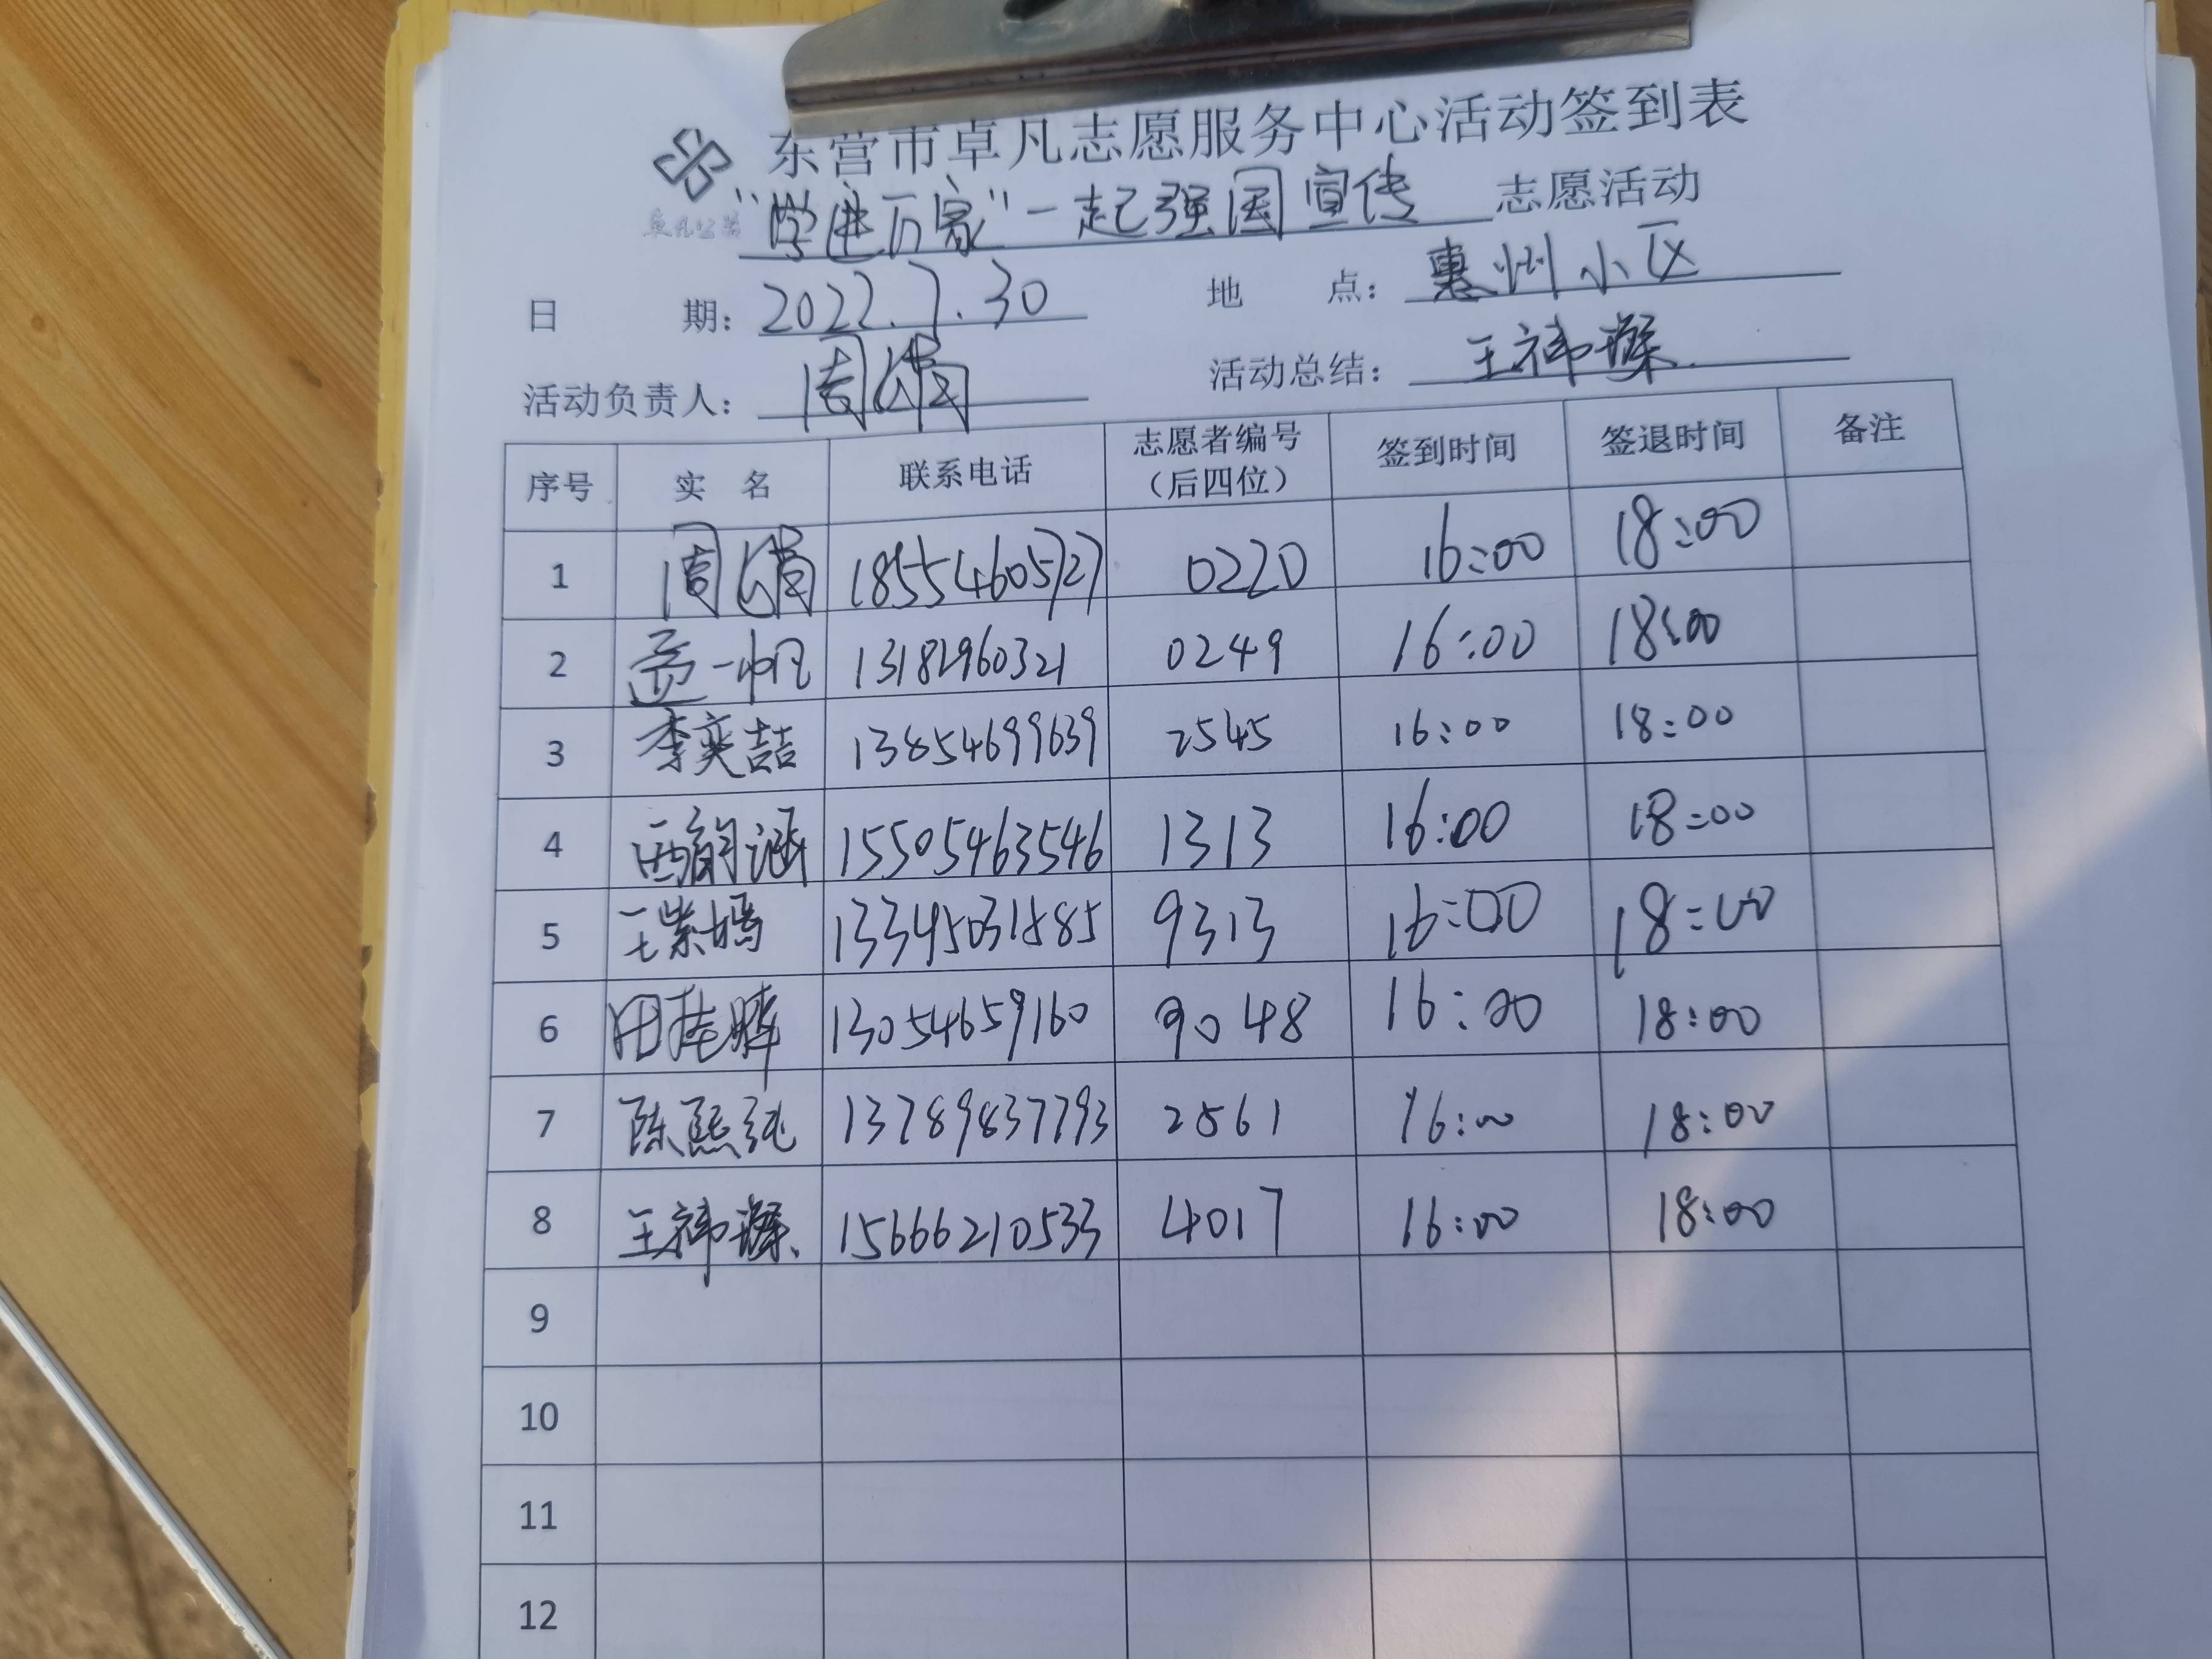 东营市卓凡志愿服务中心活动签到表
卓凡公益
“学进万家”一起强国宣传 志愿活动
日期：2022.7.30 地点：惠州小区
活动负责人：周娟 活动总结：王祎璨
序号 实名 联系电话 志愿者编号（后四位） 签到时间 签退时间 备注
1 周娟 18554605727 0220 16:00 18:00
2 孟一帆 13182960321 0249 16:00 18:00
3 李奕喆 13854699639 2545 16:00 18:00
4 15505463546 1313 16:00 18:00
5 王紫嫣 13345031585 9313 16:00 18:00
6 13054659160 9048 16:00 18:00
7 陈熙纯 13789837793 2561 16:00 18:00
8 王祎璨 15666210533 4017 16:00 18:00
9
10
11
12